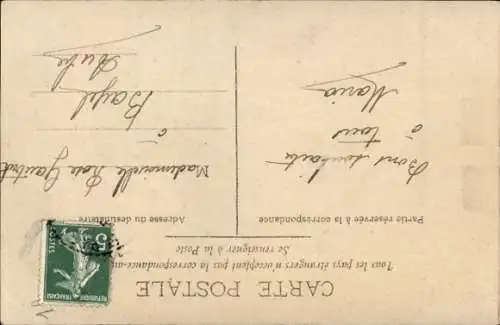 CARTE POSTALE
Tous les pays étrangers n'acceptent pas la correspondance au
Se renseigner à la Poste
Partie réservée à la correspondance
Bons souhaits
à tous
Maria
Adresse du destinataire
Mademoiselle Rose
à
Bayel
Aube
5
POSTES
REPUBLIQUE FRANÇAISE